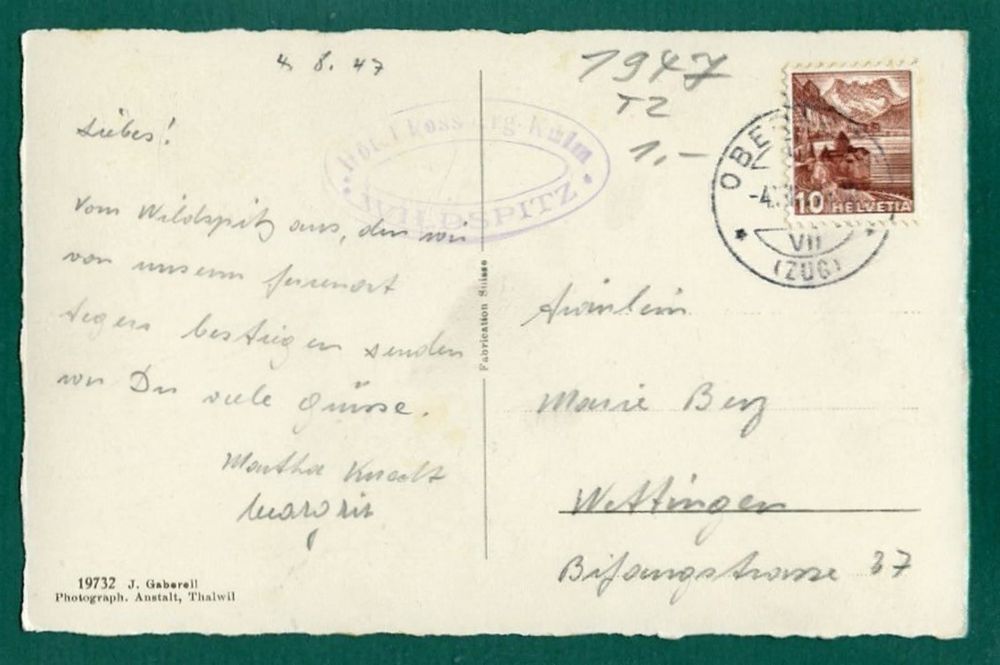 4. 8. 47
1947
T2
1.-
Liebes!
Hôtel Rossberg-Kulm
WILDSPITZ
OBE
-4.
VII
(ZUG)
10 HELVETIA
Vom Wildspitz aus, den wir
von unserm Ferienort
bestiegen senden
wir Dir viele Grüsse.
Martha Knecht
Margrit
Fabrication Suisse
Fräulein
Marie Benz
Wettingen
Bifangstrasse 37
19732 J. Gaberell
Photograph. Anstalt, Thalwil